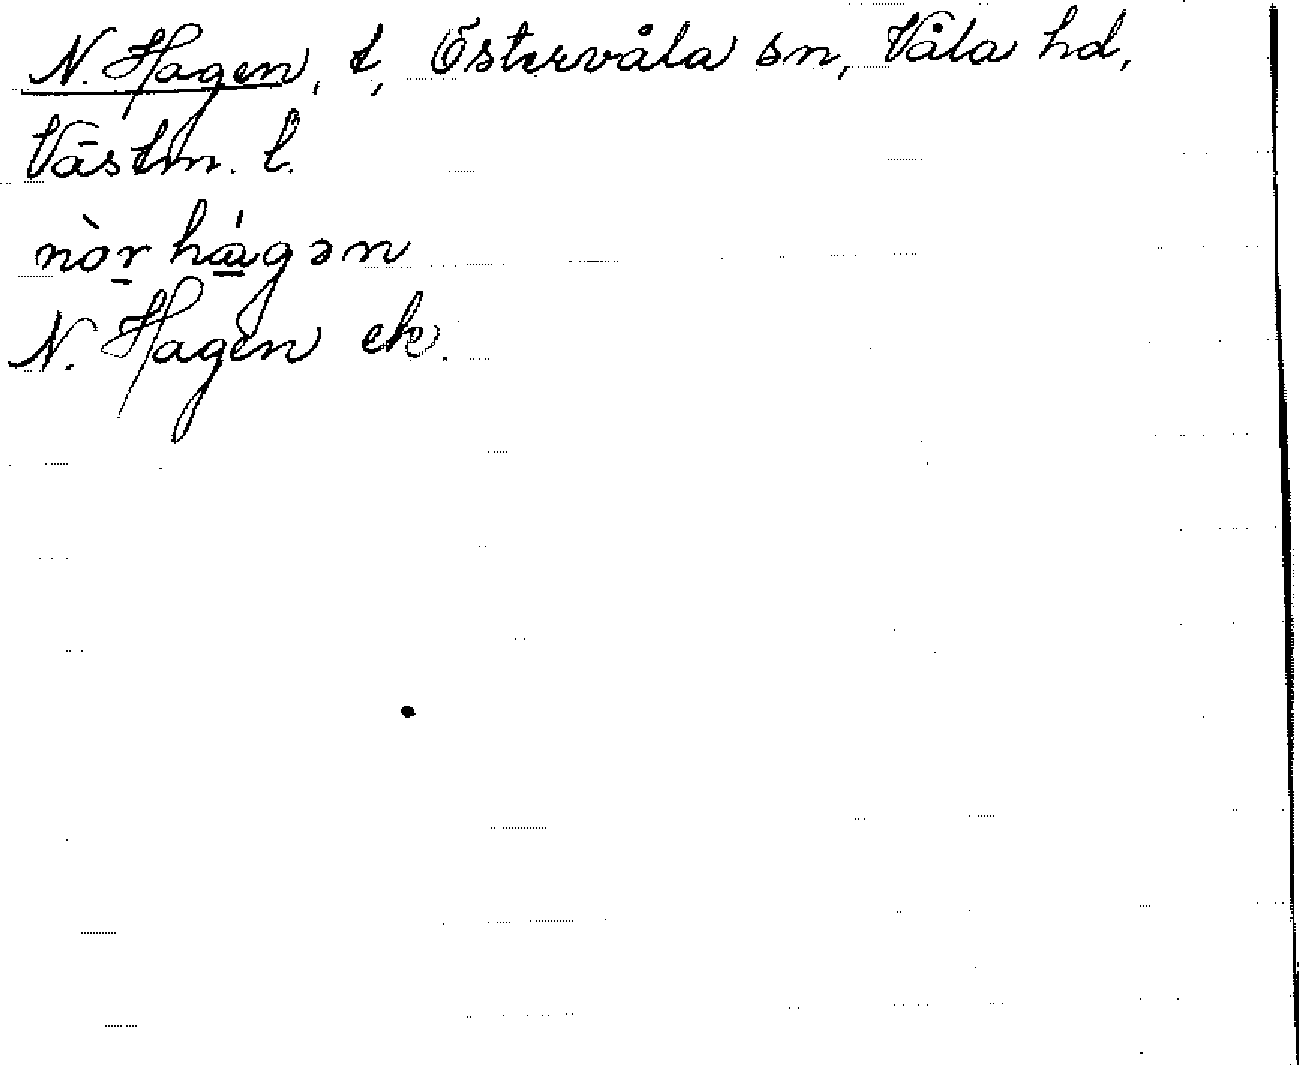 N. Hagen, t, Östervåla sn, Våla hd,
Västm. l.
nòr hágən
N. Hagen ek.